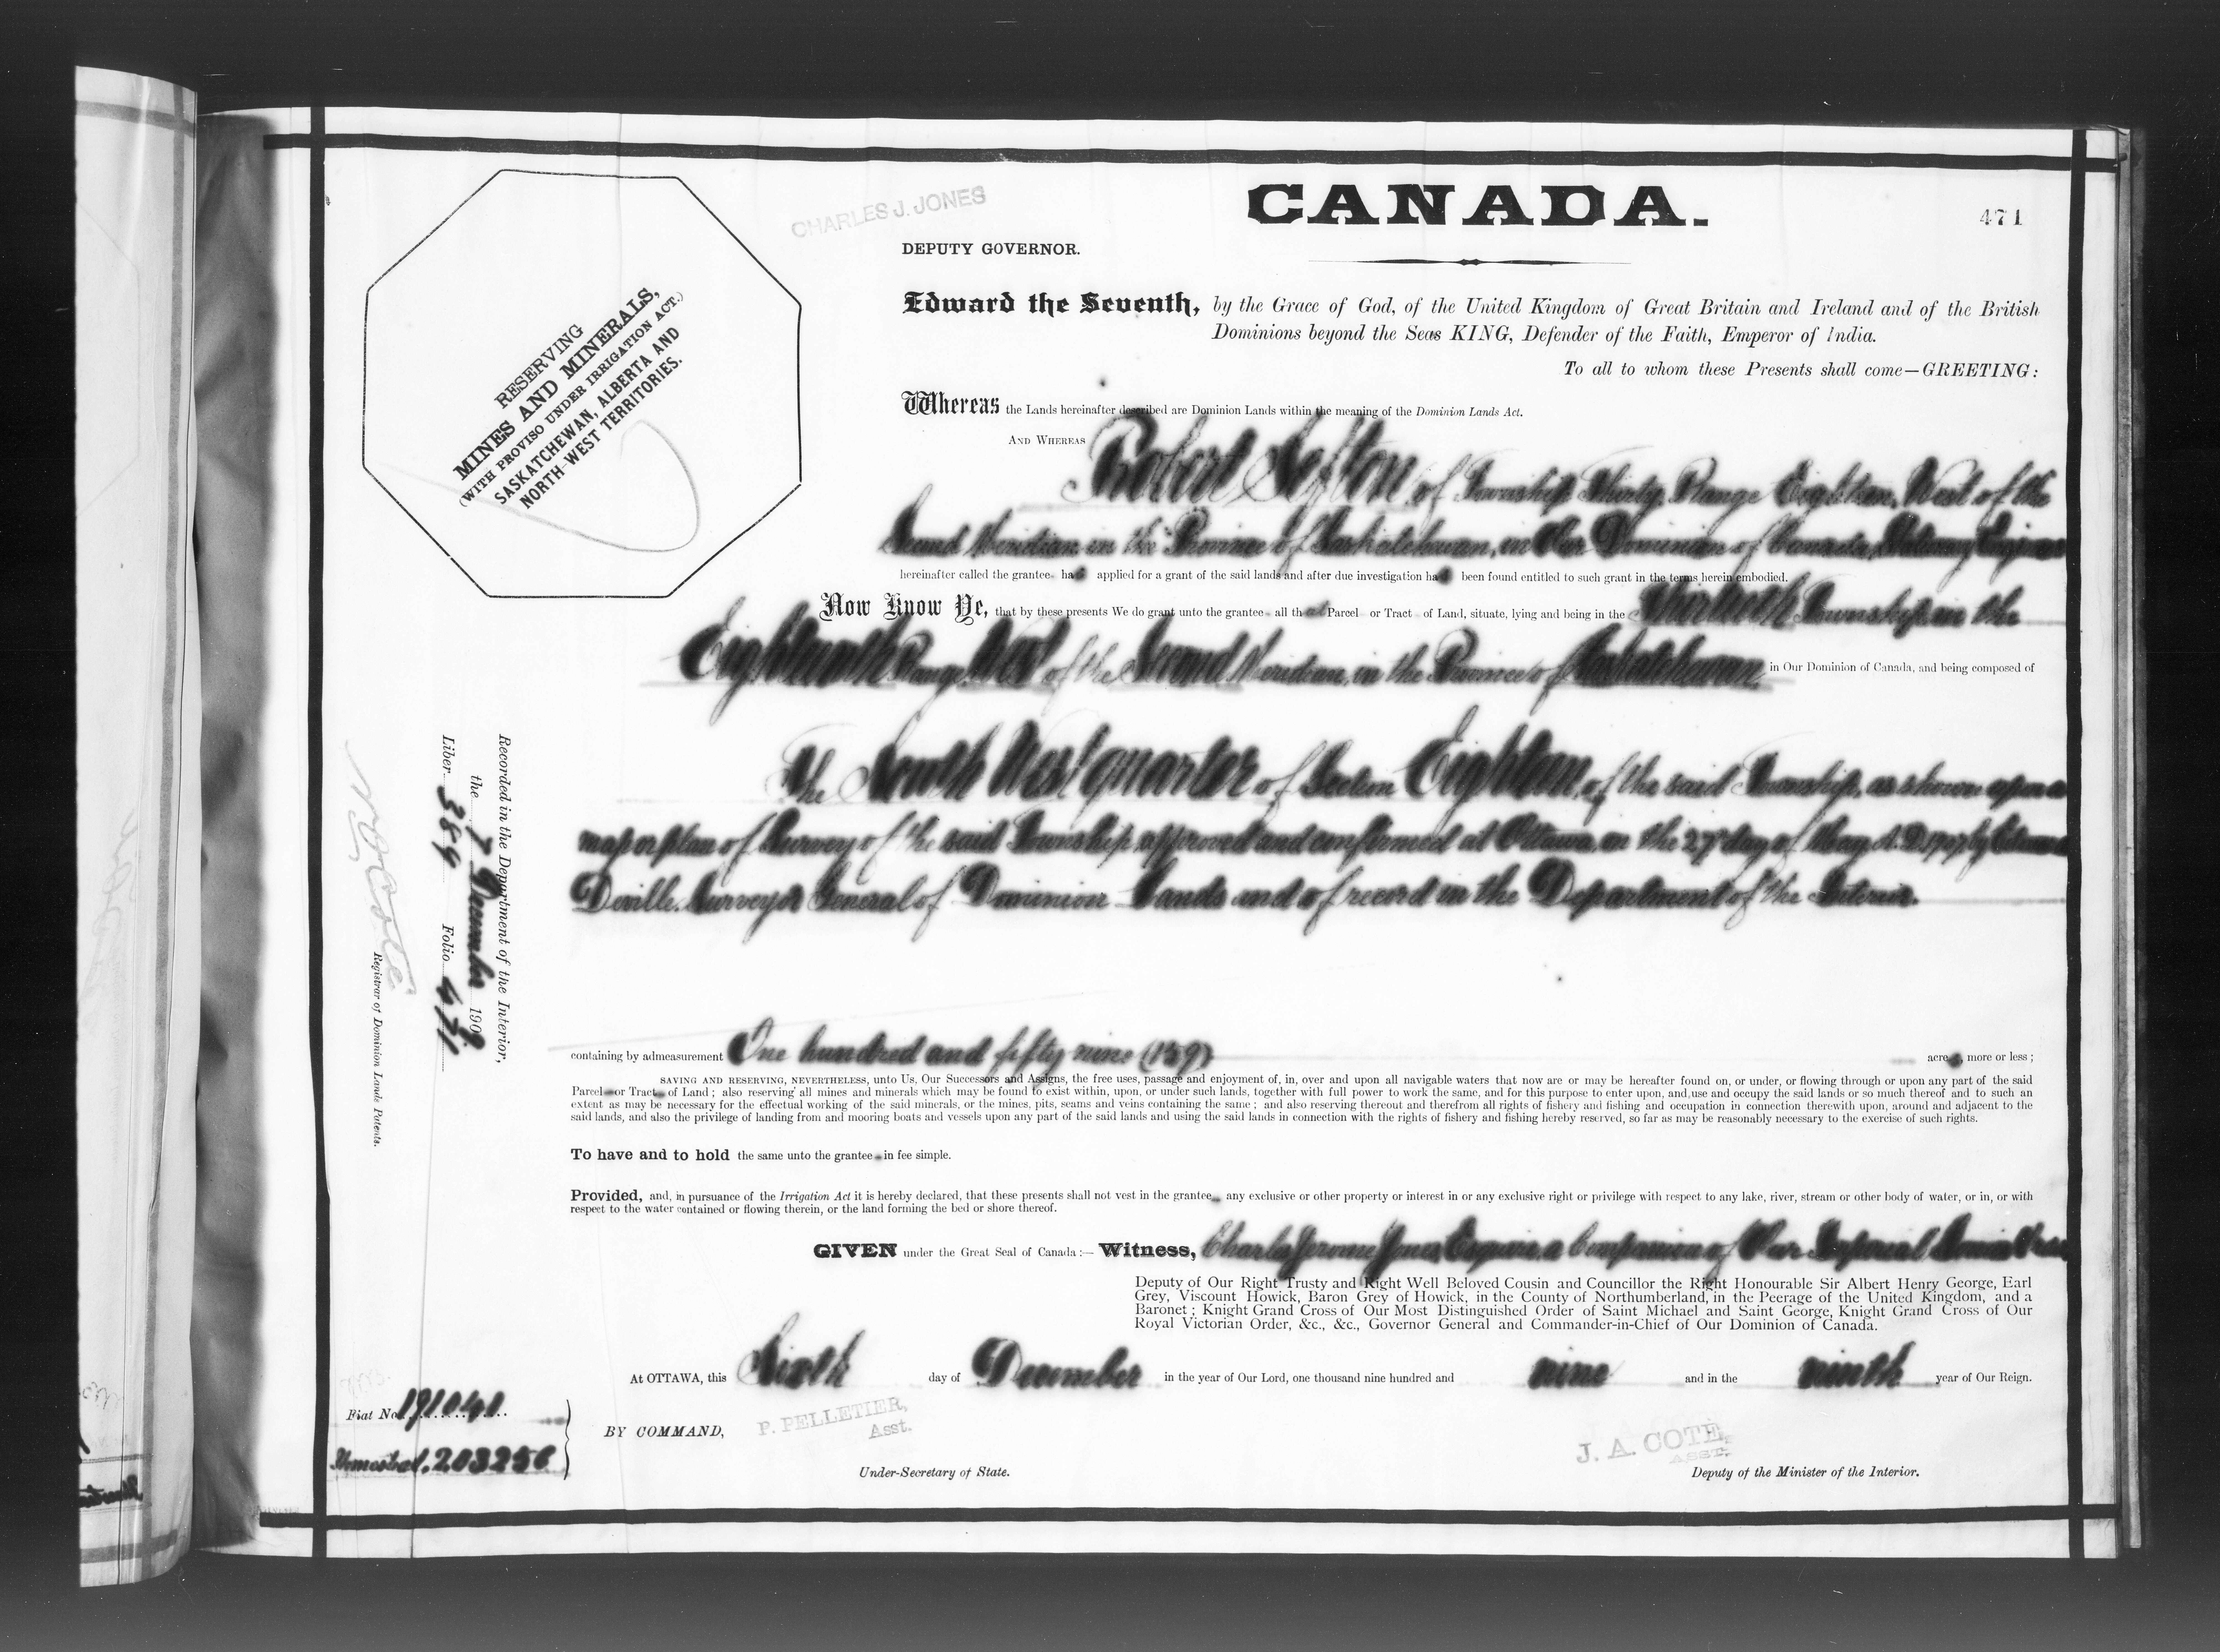 CHARLES J. JONES
CANADA.
471
DEPUTY GOVERNOR.
RESERVING
MINES AND MINERALS,
(WITH PROVISO UNDER IRRIGATION ACT.)
SASKATCHEWAN, ALBERTA AND
NORTH-WEST TERRITORIES.
Edward the Seventh, by the Grace of God, of the United Kingdom of Great Britain and Ireland and of the British
Dominions beyond the Seas KING, Defender of the Faith, Emperor of India.
To all to whom these Presents shall come—GREETING:
Whereas the Lands hereinafter described are Dominion Lands within the meaning of the Dominion Lands Act.
AND WHEREAS Robert Sefton of Township Thirty, Range Eighteen, West of the
Second Meridian, in the Province of Saskatchewan, in Our Dominion of Canada,
hereinafter called the grantee has applied for a grant of the said lands and after due investigation has been found entitled to such grant in the terms herein embodied.
Now Know Ye, that by these presents We do grant unto the grantee all that Parcel or Tract of Land, situate, lying and being in the Thirtieth Township, in the
Eighteenth Range, West of the Second Meridian, in the Province of Saskatchewan, in Our Dominion of Canada, and being composed of
The West quarter of Section Eighteen, of the said Township, as shown upon a
map or plan of Survey of the said Township, approved and confirmed at Ottawa, on the 27th day of May A.D. 1907 by Edouard
Deville, Surveyor General of Dominion Lands and of record in the Department of the Interior.
containing by admeasurement One hundred and fifty nine (159) acres, more or less;
SAVING AND RESERVING, NEVERTHELESS, unto Us, Our Successors and Assigns, the free uses, passage and enjoyment of, in, over and upon all navigable waters that now are or may be hereafter found on, or under, or flowing through or upon any part of the said
Parcel or Tract of Land; also reserving all mines and minerals which may be found to exist within, upon, or under such lands, together with full power to work the same, and for this purpose to enter upon, and use and occupy the said lands or so much thereof and to such an
extent as may be necessary for the effectual working of the said minerals, or the mines, pits, seams and veins containing the same; and also reserving thereout and therefrom all rights of fishery and fishing and occupation in connection therewith upon, around and adjacent to the
said lands, and also the privilege of landing from and mooring boats and vessels upon any part of the said lands and using the said lands in connection with the rights of fishery and fishing hereby reserved, so far as may be reasonably necessary to the exercise of such rights.
To have and to hold the same unto the grantee in fee simple.
Provided, and, in pursuance of the Irrigation Act it is hereby declared, that these presents shall not vest in the grantee any exclusive or other property or interest in or any exclusive right or privilege with respect to any lake, river, stream or other body of water, or in, or with
respect to the water contained or flowing therein, or the land forming the bed or shore thereof.
GIVEN under the Great Seal of Canada:— Witness, Charles Jerome Jones, Esquire, a Companion of Our Imperial Service Order
Deputy of Our Right Trusty and Right Well Beloved Cousin and Councillor the Right Honourable Sir Albert Henry George, Earl
Grey, Viscount Howick, Baron Grey of Howick, in the County of Northumberland, in the Peerage of the United Kingdom, and a
Baronet; Knight Grand Cross of Our Most Distinguished Order of Saint Michael and Saint George, Knight Grand Cross of Our
Royal Victorian Order, &c., &c., Governor General and Commander-in-Chief of Our Dominion of Canada.
At OTTAWA, this Sixth day of December in the year of Our Lord, one thousand nine hundred and nine and in the ninth year of Our Reign.
BY COMMAND,
P. PELLETIER,
Asst.
Under-Secretary of State.
J. A. COTE,
ASST.
Deputy of the Minister of the Interior.
Fiat No. 191041
Homestead. 203256
Recorded in the Department of the Interior,
the 7 December 1909
Liber 389 Folio 471
N O Coté
Registrar of Dominion Lands Patents.